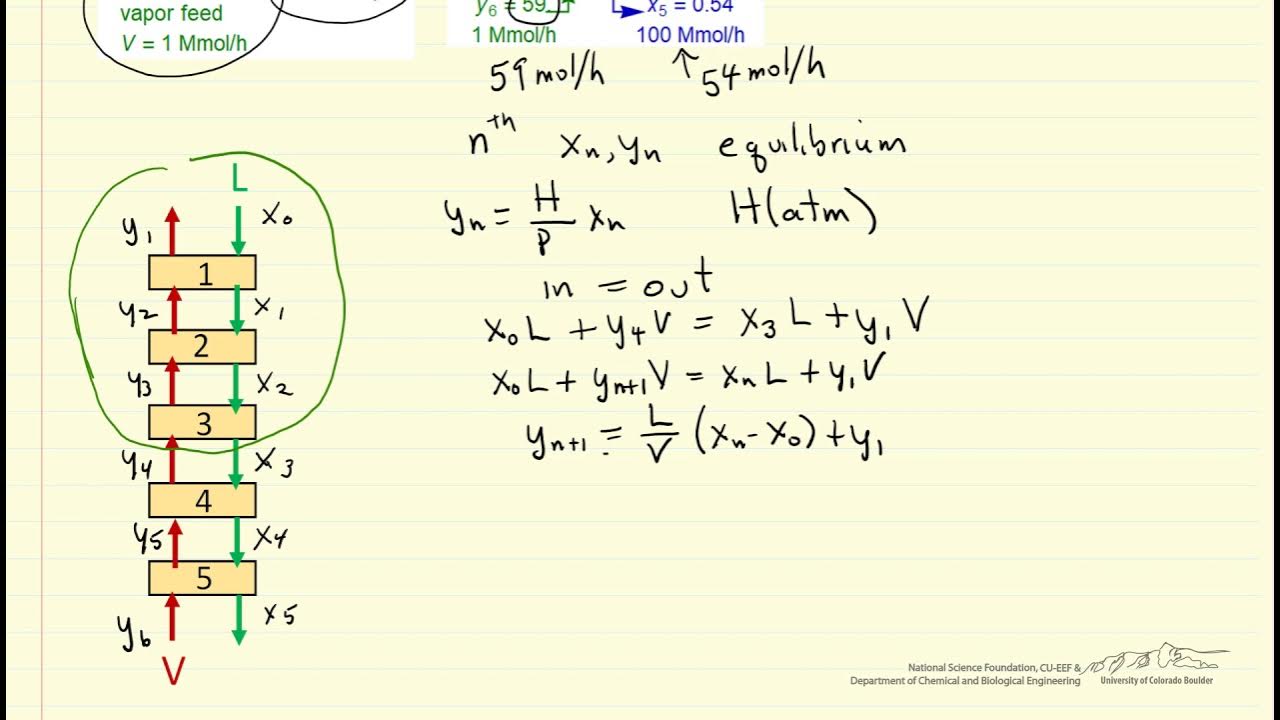 vapor feed
V = 1 Mmol/h
y6 = 59
x5 = 0.54
1 Mmol/h
100 Mmol/h
59 mol/h
↑ 54 mol/h
nth xn, yn equilibrium
yn = H/P xn H(atm)
in = out
x0 L + y4 V = x3 L + y1 V
x0 L + yn+1 V = xn L + y1 V
yn+1 = L/V (xn - x0) + y1
L
y1 x0
1
y2 x1
2
y3 x2
3
y4 x3
4
y5 x4
5
y6 x5
V
National Science Foundation, CU-EEF &
Department of Chemical and Biological Engineering
University of Colorado Boulder